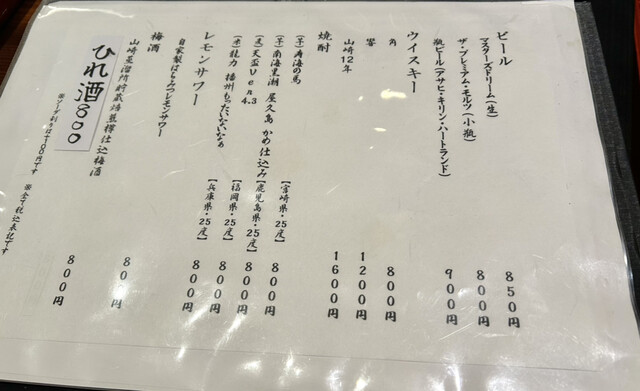 ビール
マスターズドリーム(生) 850円
ザ・プレミアム・モルツ(小瓶) 800円
瓶ビール(アサヒ・キリン・ハートランド) 900円
ウイスキー
角 800円
響 1200円
山崎12年 1600円
焼酎
(芋)寿海の馬 【宮崎県・25度】 800円
(芋)南海黒潮 屋久島 かめ仕込み 【鹿児島県・25度】 800円
(麦)天盃Ver4.3 【福岡県・25度】 800円
(米)龍力 播州もったいないなぁ 【兵庫県・25度】 800円
レモンサワー
自家製はちみつレモンサワー 800円
梅酒
山崎蒸溜所貯蔵焙煎樽仕込梅酒 800円
ひれ酒800
800円
※ソーダ割りは+100円です
※全て税込表記です